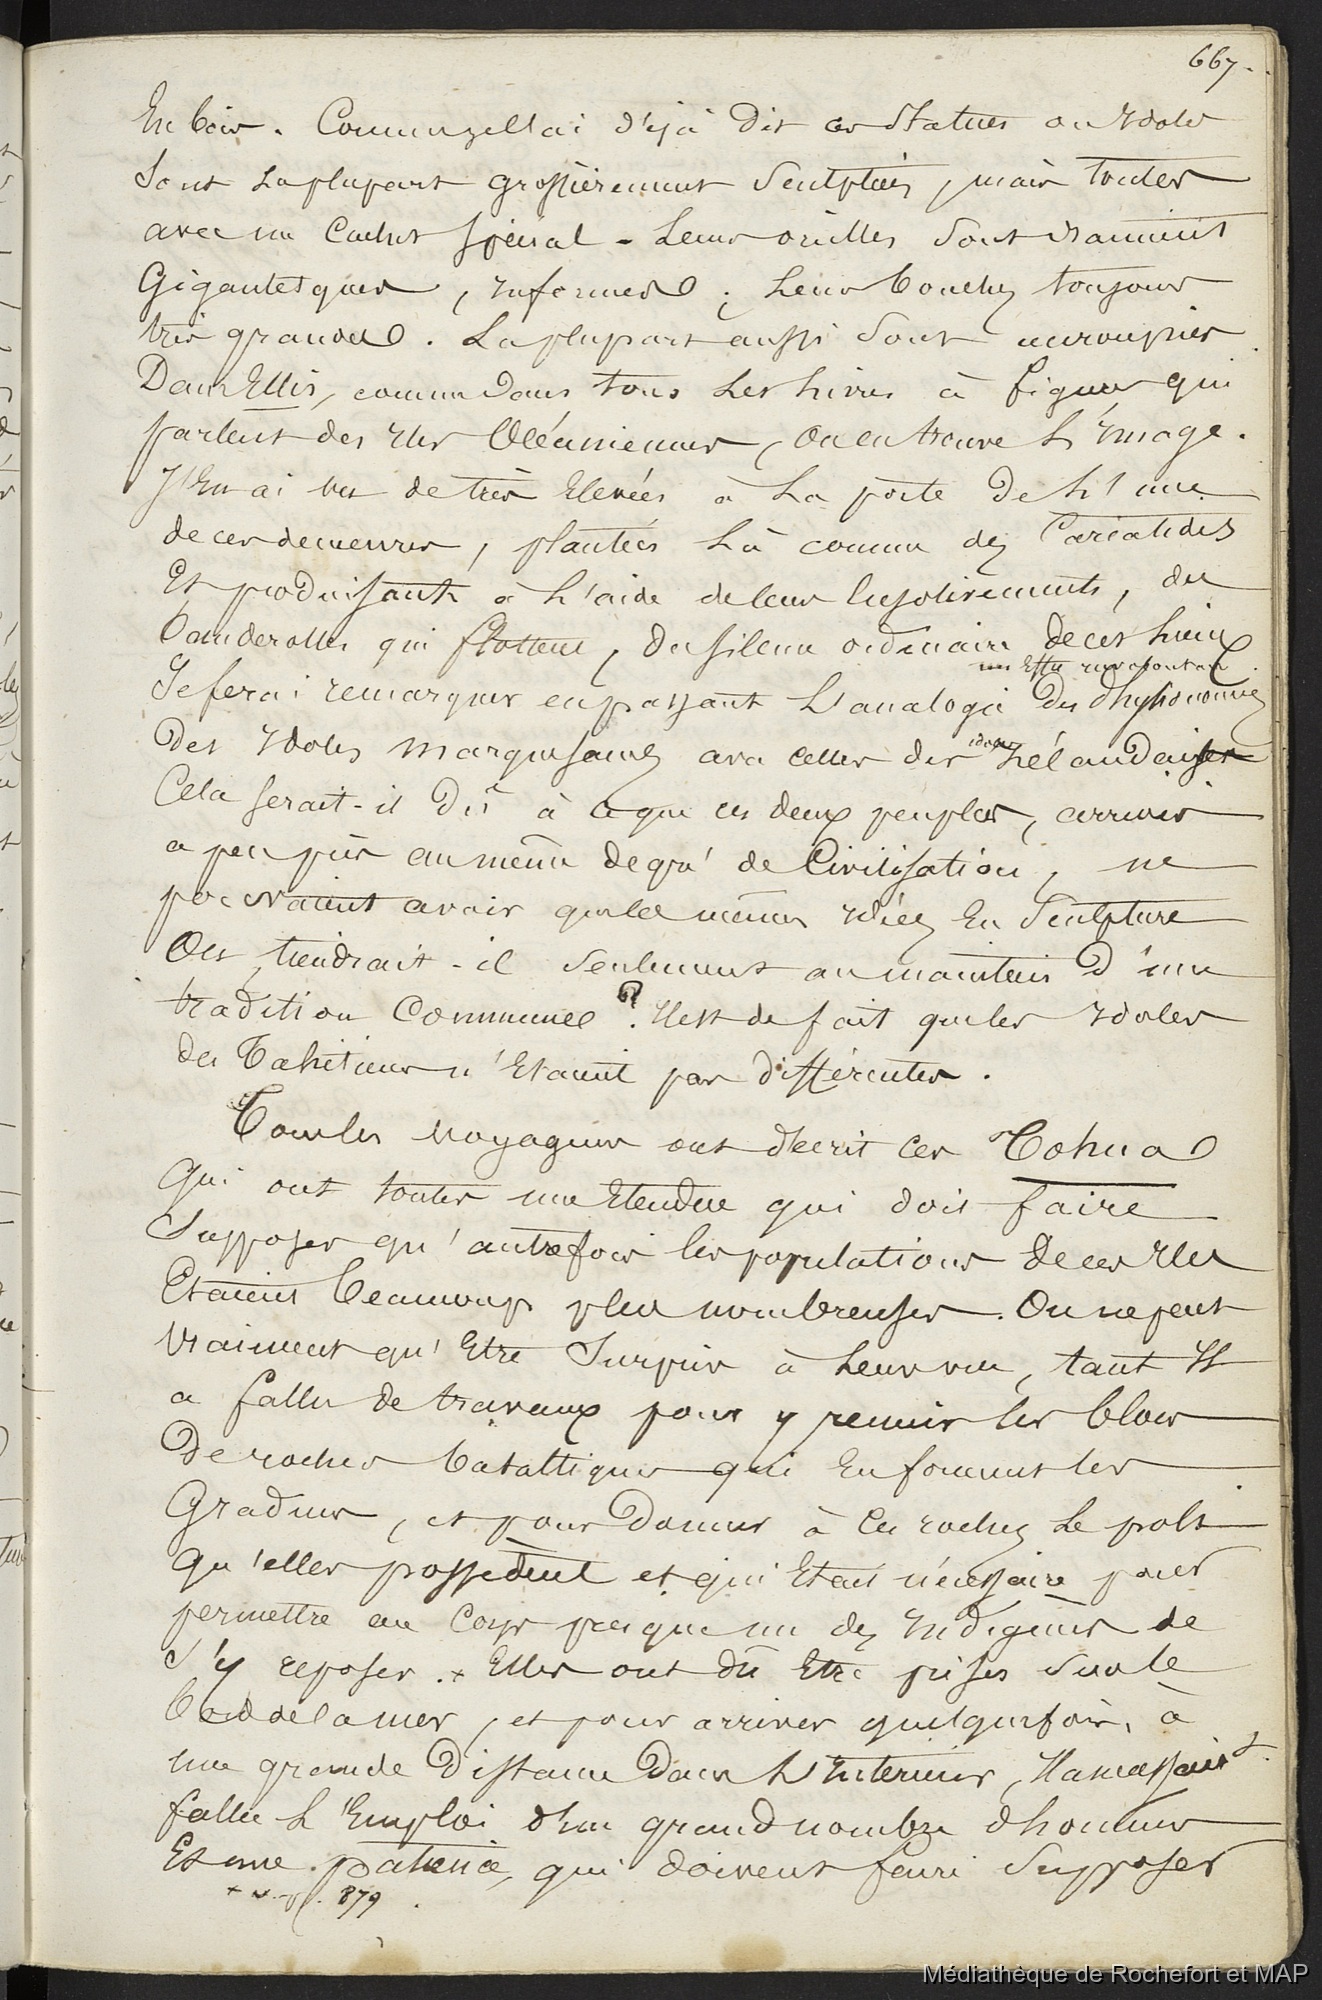 667.
En bois. Comme je l'ai déjà dit ces Statues ou Idoles
Sont la plupart grossièrement Sculptées, mais toutes
avec un Cachet Spécial - Leurs oreilles Sont vraiment
Gigantesques, informes ; Leurs bouches toujours
très grandes. La plupart aussi Sont accroupies
Dans Ellis, comme dans tous Les Livres à figures qui
parlent des Iles Océaniennes, on en trouve L'image.
J'En ai vu de très Elevées à La porte de L'une
de ces demeures, plantées Là comme des Cariatides
Et produisant à L'aide de leurs , des
banderolles qui flottent, du silence ordinaire de ces Lieux
un Effet
Je ferai remarquer en passant L'analogie Des Physionomies
Des Idoles marquisaines avec celles des idoles Zélandaises
Cela serait-il Dû à ce que ces deux peuples, arrivés
a peu près au même degré de Civilisation, ne
pouvaient avoir que les mêmes idées En Sculpture
Ou tiendrait-il Seulement au maintien D'une
tradition Commune ? Il est de fait que les Idoles
des Tahitiens n'Etaient pas différentes.
Tous les voyageurs ont décrit ces Tohua
Qui ont toutes une Etendue qui doit faire
Supposer qu'autrefois les populations De ces Iles
Etaient beaucoup plus nombreuses. On ne peut
vraiment qu'Etre Surpris à Leur vue, tant Il
a fallu de travaux pour y réunir les blocs
De roches basaltiques qui En forment les
Gradins, et pour Donner à Ces roches Le poli
Qu'elles possèdent et qui Etait nécessaire pour
permettre au Corps presque nu des Indigènes de
s'y reposer. + Elles ont dû Etre prises Sur le
bord de la mer, et pour arriver quelquefois, à
une grande Distance Dans L'Intérieur, Il a necessairt
fallu L'Emploi d'un grand nombre d'hommes
Et une patience, qui doivent faire Supposer
+ v. p. 879.
Médiathèque de Rochefort et MAP